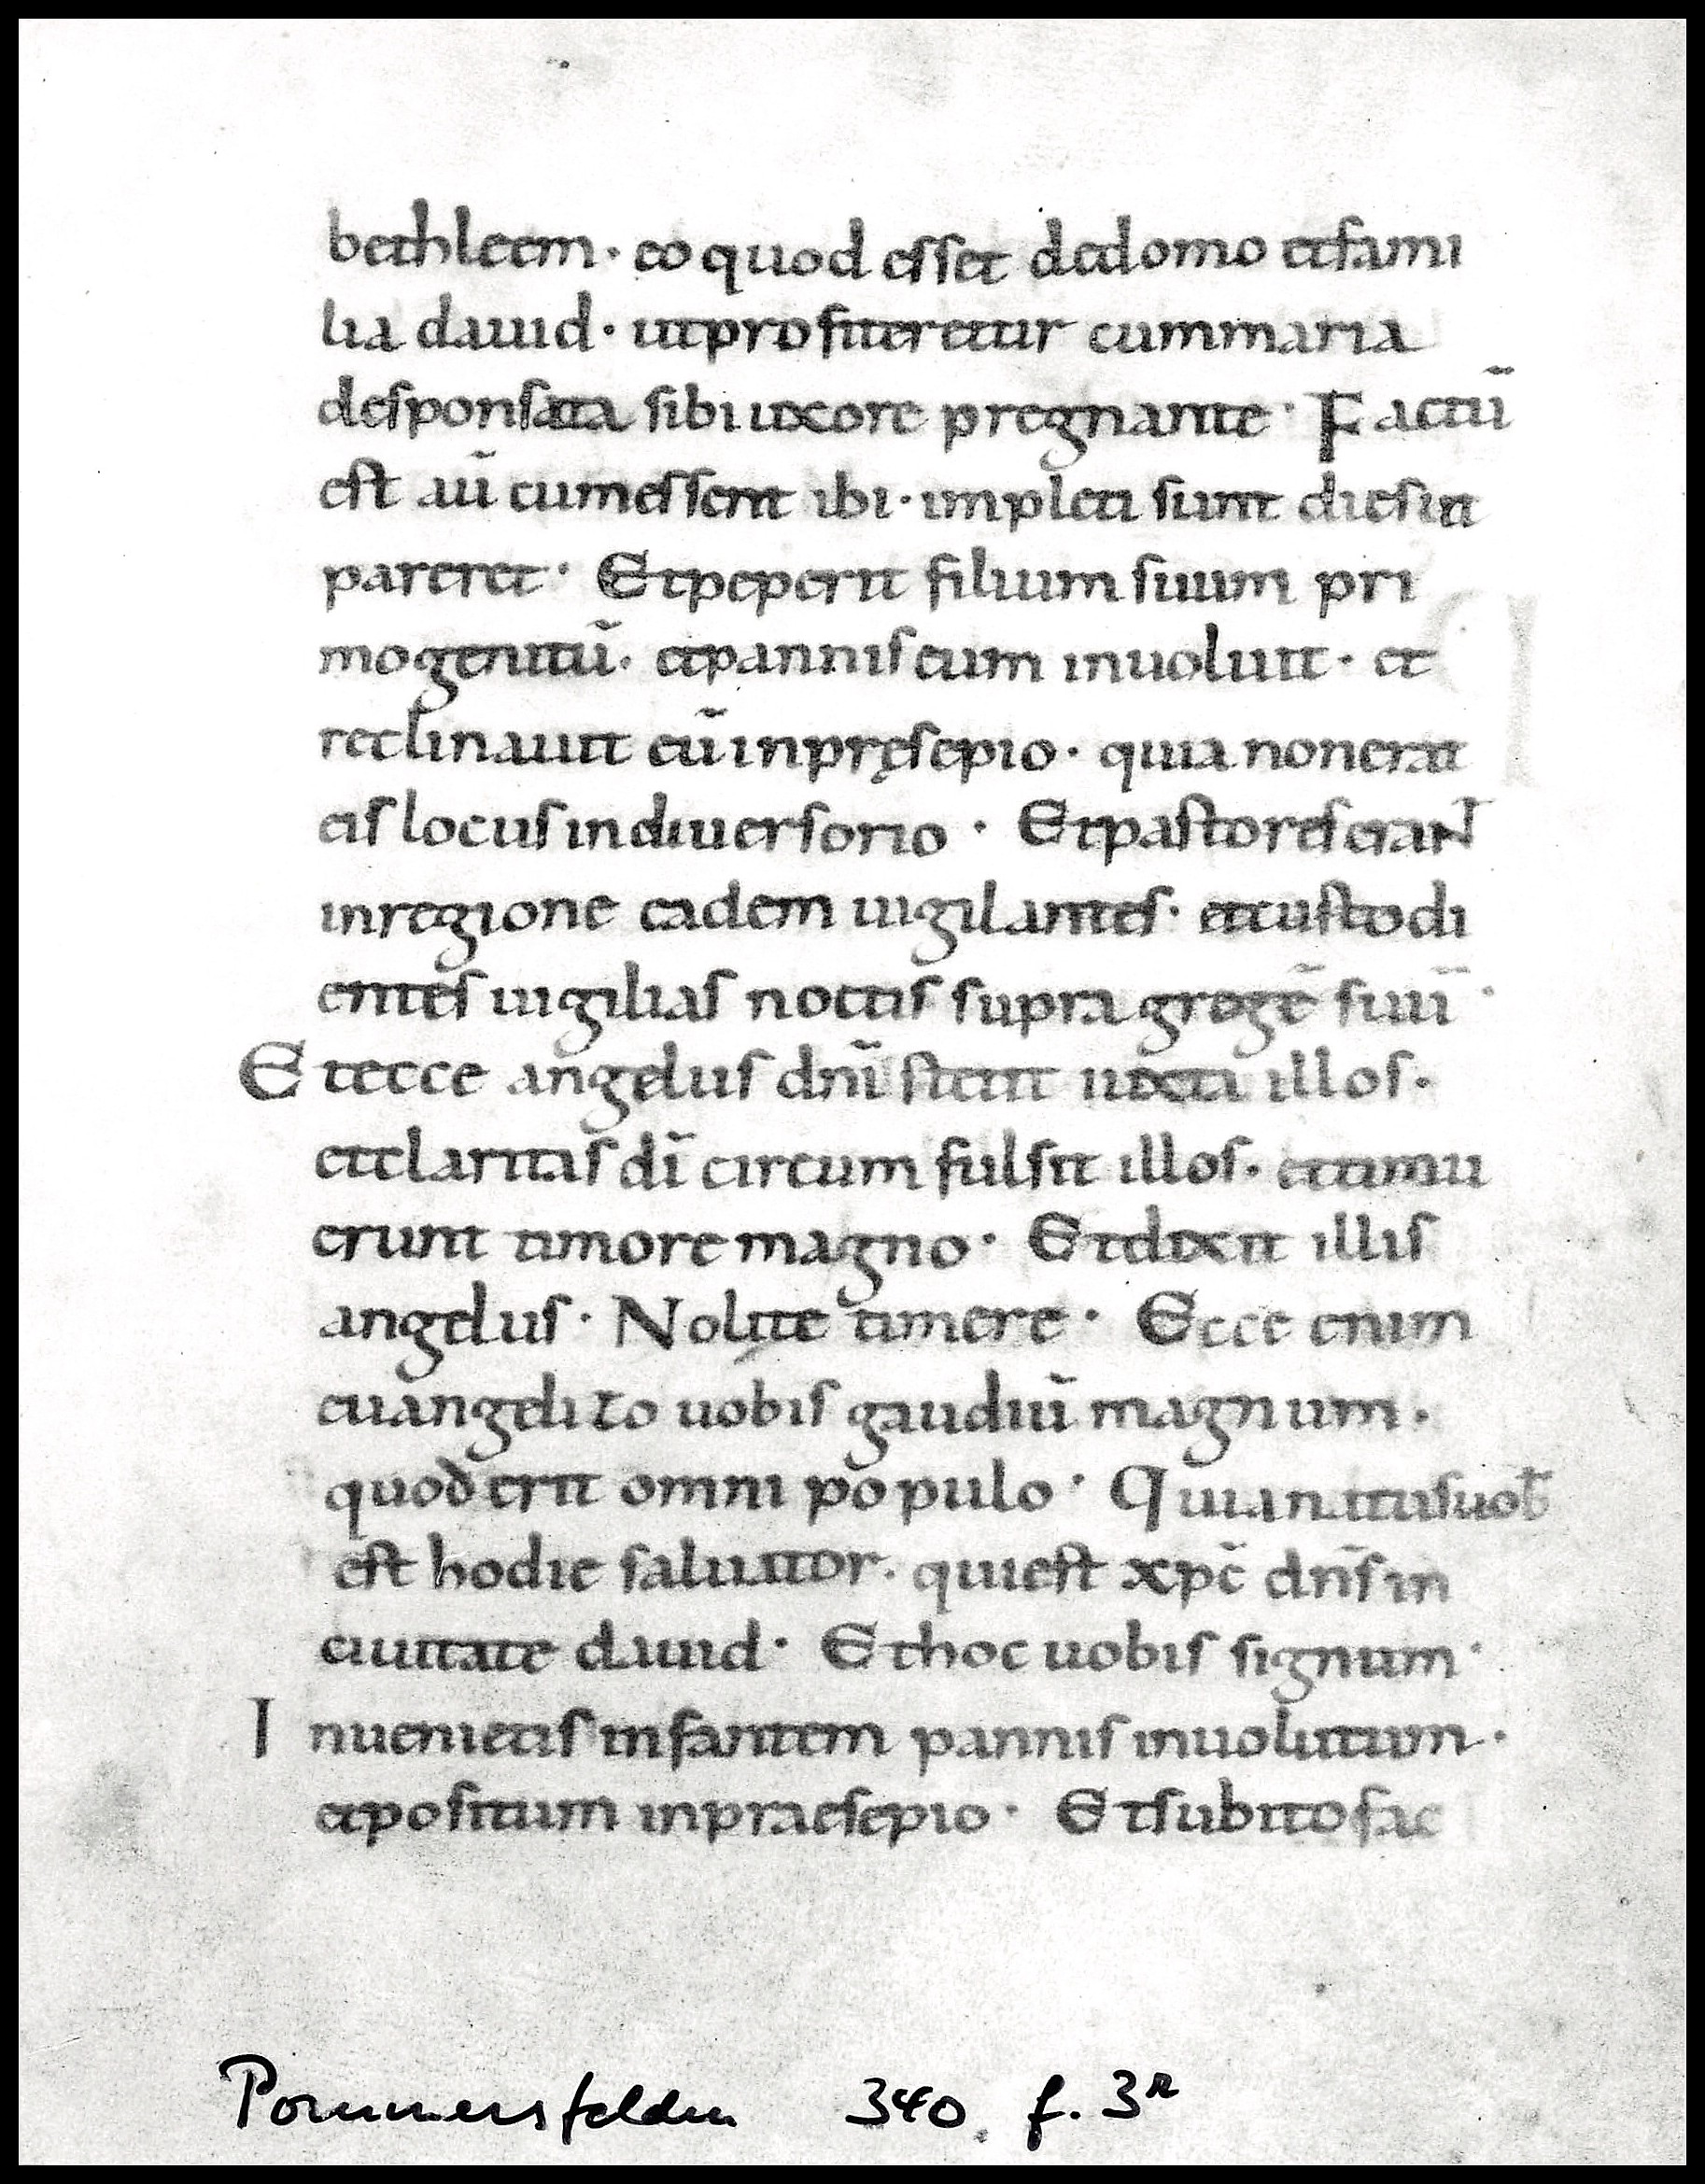 bethleem · eo quod esset dedomo etfami
lia dauid · utprofiteretur cummaria
desponsata sibi uxore pregnante · Factū
est aū cumessent ibi · impleti sunt diesut
pareret · Etpeperit filium suum pri
mogenitū · etpannis eum inuoluit · et
reclinauit eū inpręsepio · quia nonerat
eis locus indiuersorio · Etpastores eraNT
inregione eadem uigilantes · etcustodi
entes uigilias noctis supra gregē suū ·
Etecce angelus dnī stetit iuxta illos ·
etclaritas dī circum fulsit illos · ettimu
erunt timore magno · Etdixit illis
angelus · Nolite timere · Ecce enim
euangelizo uobis gaudiū magnum ·
quod erit omni populo · Quia natusuob̄
est hodie saluator · quiest xpc̄ dn̄s in
ciuitate dauid · Ethoc uobis signum ·
Inuenietis infantem pannis inuolutum ·
etpositum inpraesepio · Etsubito fac
Pommersfelden 340, f. 3r